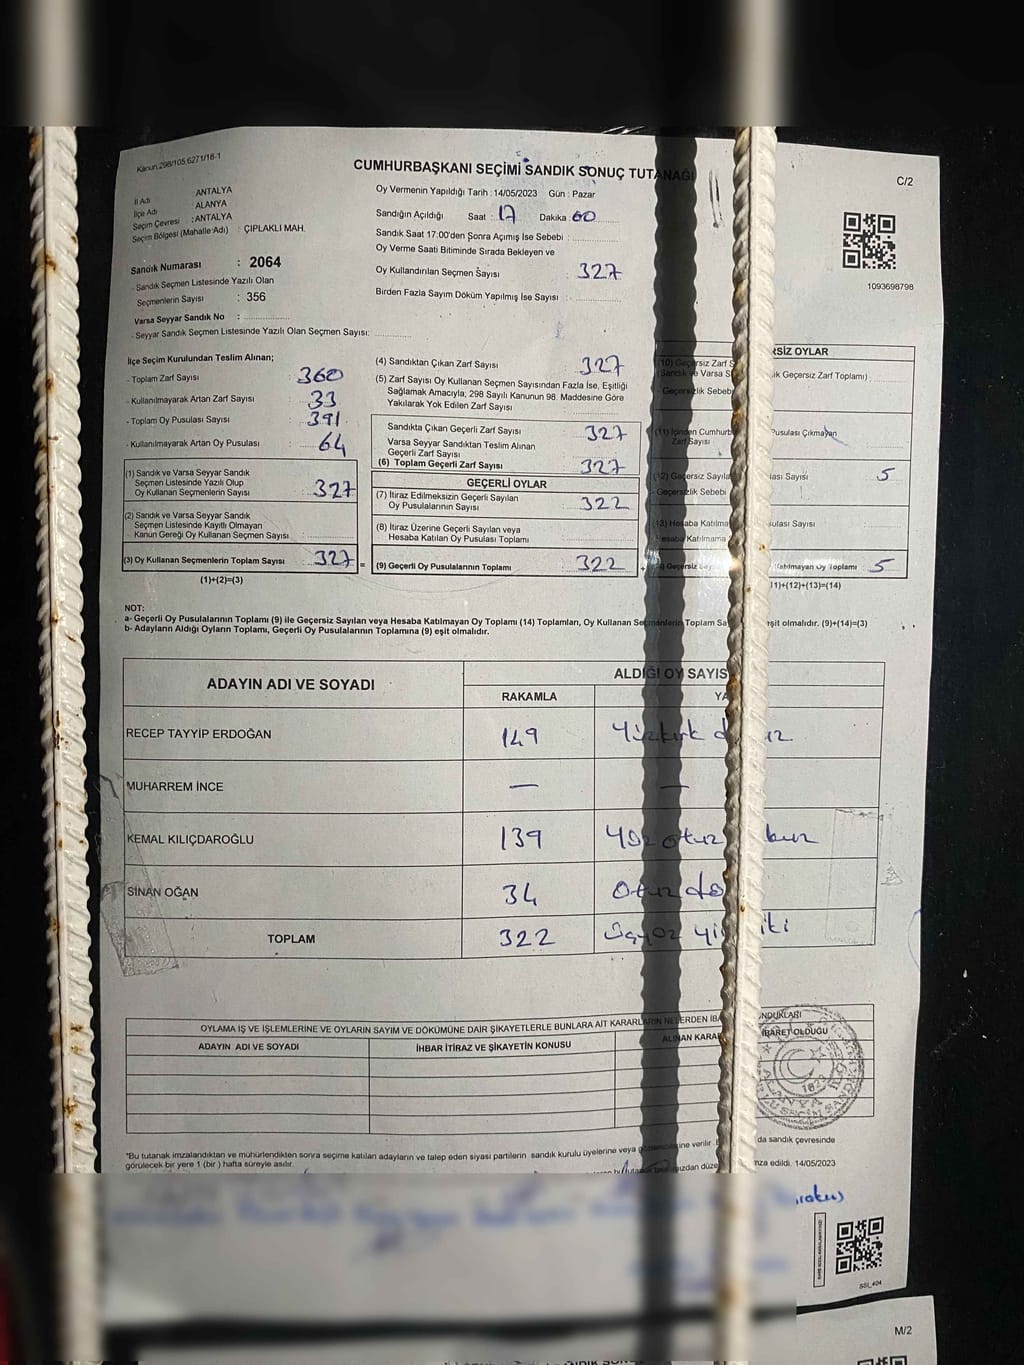 Kanun.298/105,6271/18-1
CUMHURBAŞKANI SEÇİMİ SANDIK SONUÇ TUTANAĞI
C/2
İl Adı ANTALYA
İlçe Adı : ALANYA
Seçim Çevresi : ANTALYA
Seçim Bölgesi (Mahalle Adı) : ÇIPLAKLI MAH.
Sandık Numarası : 2064
- Sandık Seçmen Listesinde Yazılı Olan
Seçmenlerin Sayısı : 356
Varsa Seyyar Sandık No :
- Seyyar Sandık Seçmen Listesinde Yazılı Olan Seçmen Sayısı:
Oy Vermenin Yapıldığı Tarih : 14/05/2023 Gün : Pazar
Sandığın Açıldığı Saat : 17 Dakika : 00
Sandık Saat 17:00'den Sonra Açımış İse Sebebi :
Oy Verme Saati Bitiminde Sırada Bekleyen ve
Oy Kullandırılan Seçmen Sayısı : 327
Birden Fazla Sayım Döküm Yapılmış İse Sayısı :
1093698798
İlçe Seçim Kurulundan Teslim Alınan;
- Toplam Zarf Sayısı 360
- Kullanılmayarak Artan Zarf Sayısı 33
- Toplam Oy Pusulası Sayısı 391
- Kullanılmayarak Artan Oy Pusulası 64
(1) Sandık ve Varsa Seyyar Sandık
Seçmen Listesinde Yazılı Olup
Oy Kullanan Seçmenlerin Sayısı : 327
(2) Sandık ve Varsa Seyyar Sandık
Seçmen Listesinde Kayıtlı Olmayan
Kanun Gereği Oy Kullanan Seçmen Sayısı
(3) Oy Kullanan Seçmenlerin Toplam Sayısı : 327 =
(1)+(2)=(3)
(4) Sandıktan Çıkan Zarf Sayısı 327
(5) Zarf Sayısı Oy Kullanan Seçmen Sayısından Fazla İse, Eşitliği
Sağlamak Amacıyla; 298 Sayılı Kanunun 98. Maddesine Göre
Yakılarak Yok Edilen Zarf Sayısı
Sandıkta Çıkan Geçerli Zarf Sayısı 327
Varsa Seyyar Sandıktan Teslim Alınan
Geçerli Zarf Sayısı
(6) Toplam Geçerli Zarf Sayısı 327
GEÇERLİ OYLAR
(7) İtiraz Edilmeksizin Geçerli Sayılan
Oy Pusulalarının Sayısı : 322
(8) İtiraz Üzerine Geçerli Sayılan veya
Hesaba Katılan Oy Pusulası Toplamı
(9) Geçerli Oy Pusulalarının Toplamı : 322 +
OYLAR
(10) Geçersiz Zarf
Sandık ve Varsa Geçersiz Zarf Toplamı)
Geçersizlik Sebebi
(11) İçinden Pusulası Çıkmayan
Zarf Sayısı
(12) Geçersiz Sayısı 5
Geçersizlik Sebebi
(13) Hesaba Sayısı
Hesaba
Oy Toplamı 5
+(12)+(13)=(14)
NOT:
a- Geçerli Oy Pusulalarının Toplamı (9) ile Geçersiz Sayılan veya Hesaba Katılmayan Oy Toplamı (14) Toplamları, Oy Kullanan Seçmenlerin Toplam olmalıdır. (9)+(14)=(3)
b- Adayların Aldığı Oyların Toplamı, Geçerli Oy Pusulalarının Toplamına (9) eşit olmalıdır.
ADAYIN ADI VE SOYADI ALDIĞI OY
RAKAMLA
RECEP TAYYİP ERDOĞAN 149 Yüzkırk
MUHARREM İNCE — —
KEMAL KILIÇDAROĞLU 139 Yüz otuz
SİNAN OĞAN 34 Otuz
TOPLAM 322 Üçyüz
OYLAMA İŞ VE İŞLEMLERİNE VE OYLARIN SAYIM VE DÖKÜMÜNE DAİR ŞİKAYETLERLE BUNLARA AİT KARARLARIN NELERDEN
İBARET OLDUĞU
ADAYIN ADI VE SOYADI İHBAR İTİRAZ VE ŞİKAYETİN KONUSU ALINAN
1823
ALANYA
*Bu tutanak imzalandıktan ve mühürlendikten sonra seçime katılan adayların ve talep eden siyasi partilerin sandık kurulu üyelerine veya verilir. da sandık çevresinde
görülecek bir yere 1 (bir) hafta süreyle asılır. edildi. 14/05/2023
SSL_404
M/2